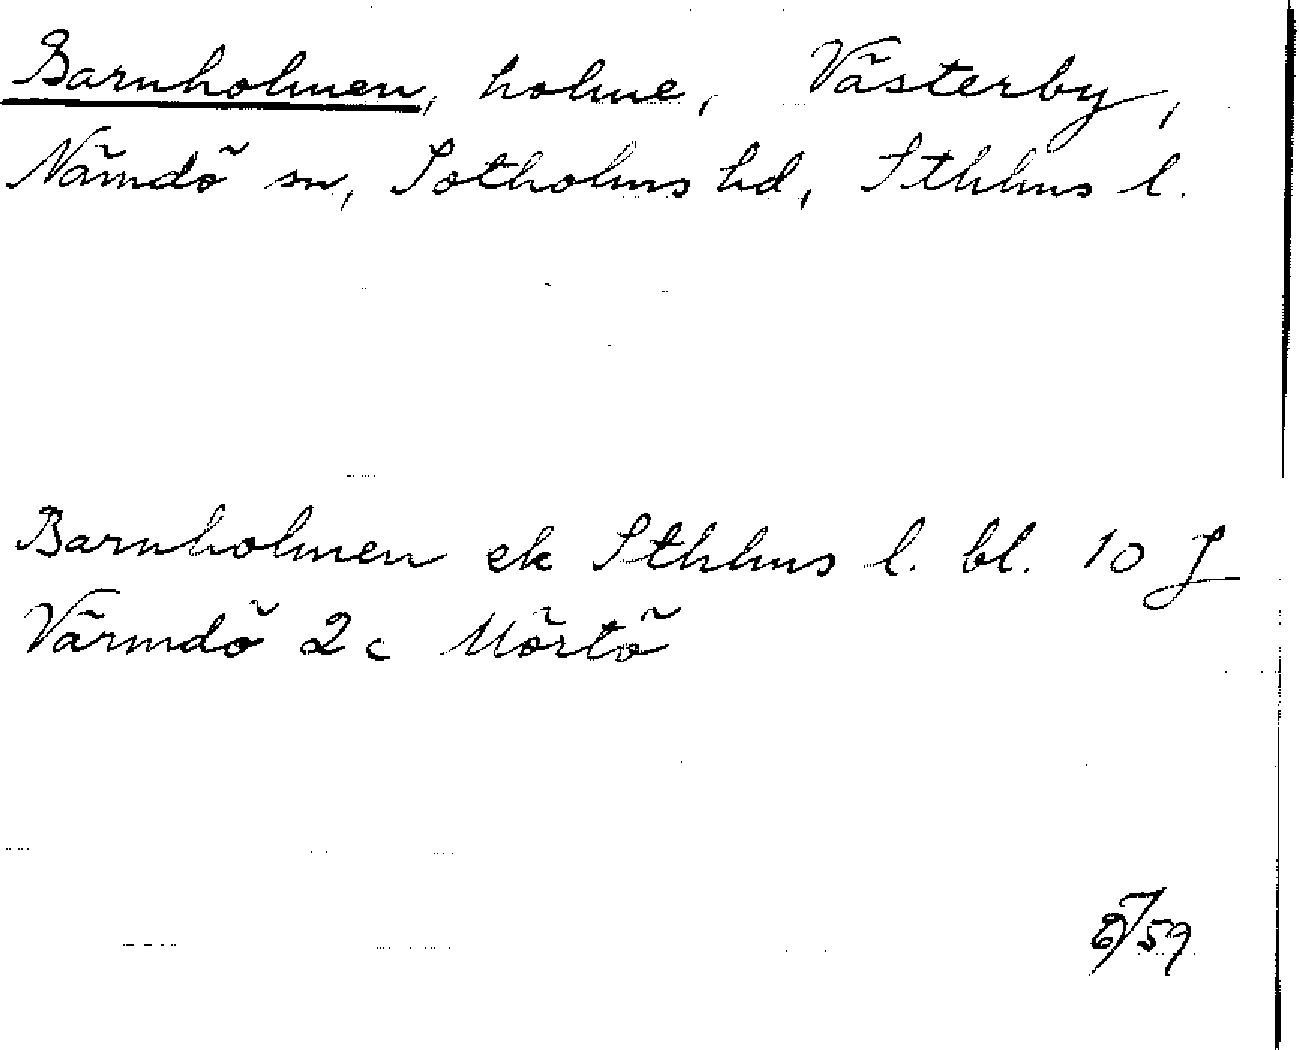 Barnholmen, holme, Västerby,
Nämdö sn, Sotholms hd, Sthlms l.
Barnholmen ek Sthlms l. bl. 10 J
Värmdö 2 c Mörtö